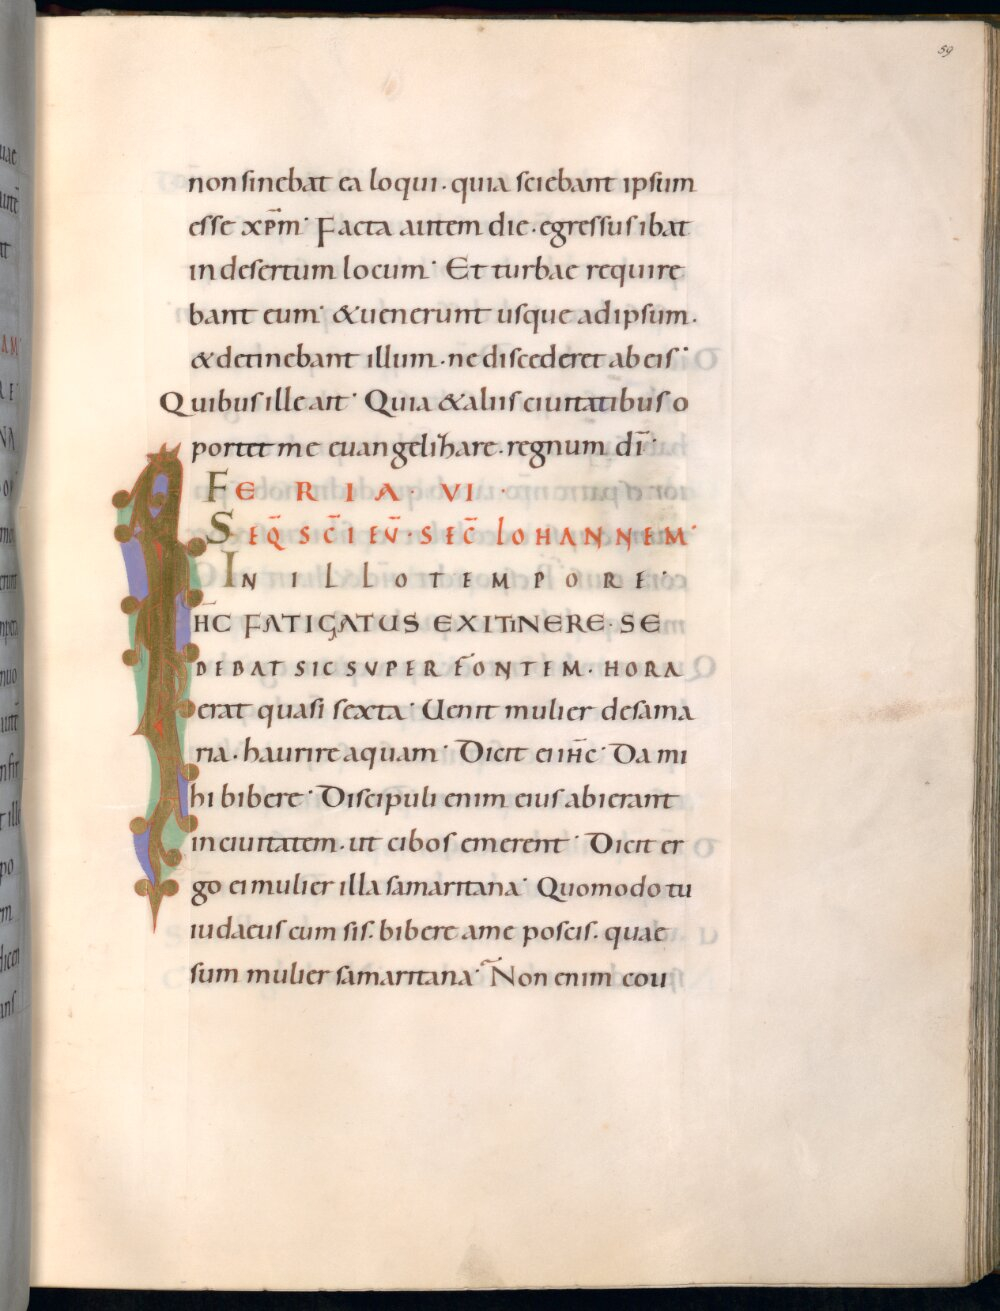 59
non sinebat ea loqui. quia sciebant ipsum
esse xp̄m. Facta autem die. egressus ibat
in desertum locum. Et turbae require
bant eum. & uenerunt usque ad ipsum.
& detinebant illum. ne discederet ab eis.
Quibus ille ait. Quia & aliis ciuitatibus o
portet me euangelizare. regnum dī.
FERIA. VI.
SEQ̄ SC̄I EV̄. SEC̄ IOHANNEM.
IN ILLO TEMPORE.
IH̄C FATIGATUS EX ITINERE. SE
DEBAT SIC SUPER FONTEM. HORA
erat quasi sexta. Uenit mulier de sama
ria. haurire aquam. Dicit ei IH̄C. Da mi
hi bibere. Discipuli enim eius abierant
in ciuitatem. ut cibos emerent. Dicit er
go ei mulier illa samaritana. Quomodo tu
iudaeus cum sis. bibere a me poscis. quae
sum mulier samaritana. Non enim cou